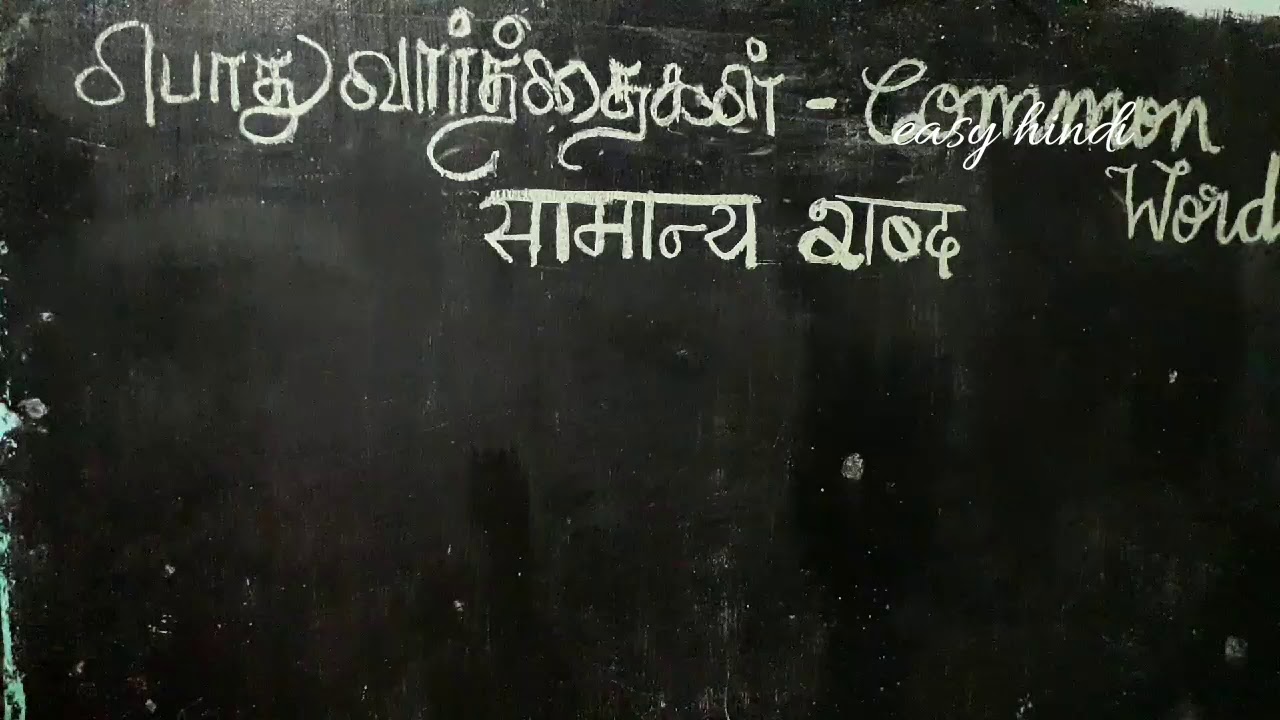 பொது வார்த்தைகள் - Common
easy hindi
Word
सामान्य शब्द